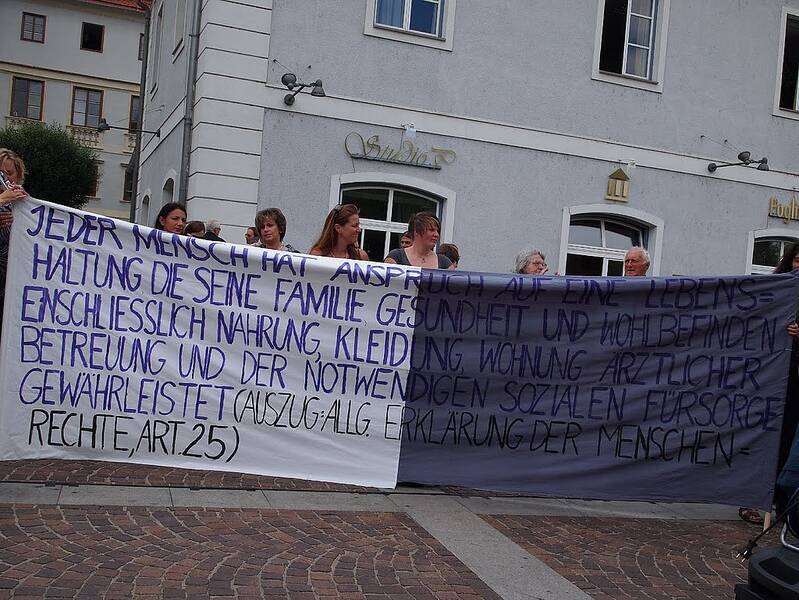 Studio P
JEDER MENSCH HAT ANSPRUCH AUF EINE LEBENS=
HALTUNG DIE SEINE FAMILIE GESUNDHEIT UND WOHLBEFINDEN
EINSCHLIESSLICH NAHRUNG, KLEIDUNG, WOHNUNG ÄRZTLICHER
BETREUUNG UND DER NOTWENDIGEN SOZIALEN FÜRSORGE
GEWÄHRLEISTET (AUSZUG: ALLG. ERKLÄRUNG DER MENSCHEN=
RECHTE, ART. 25)